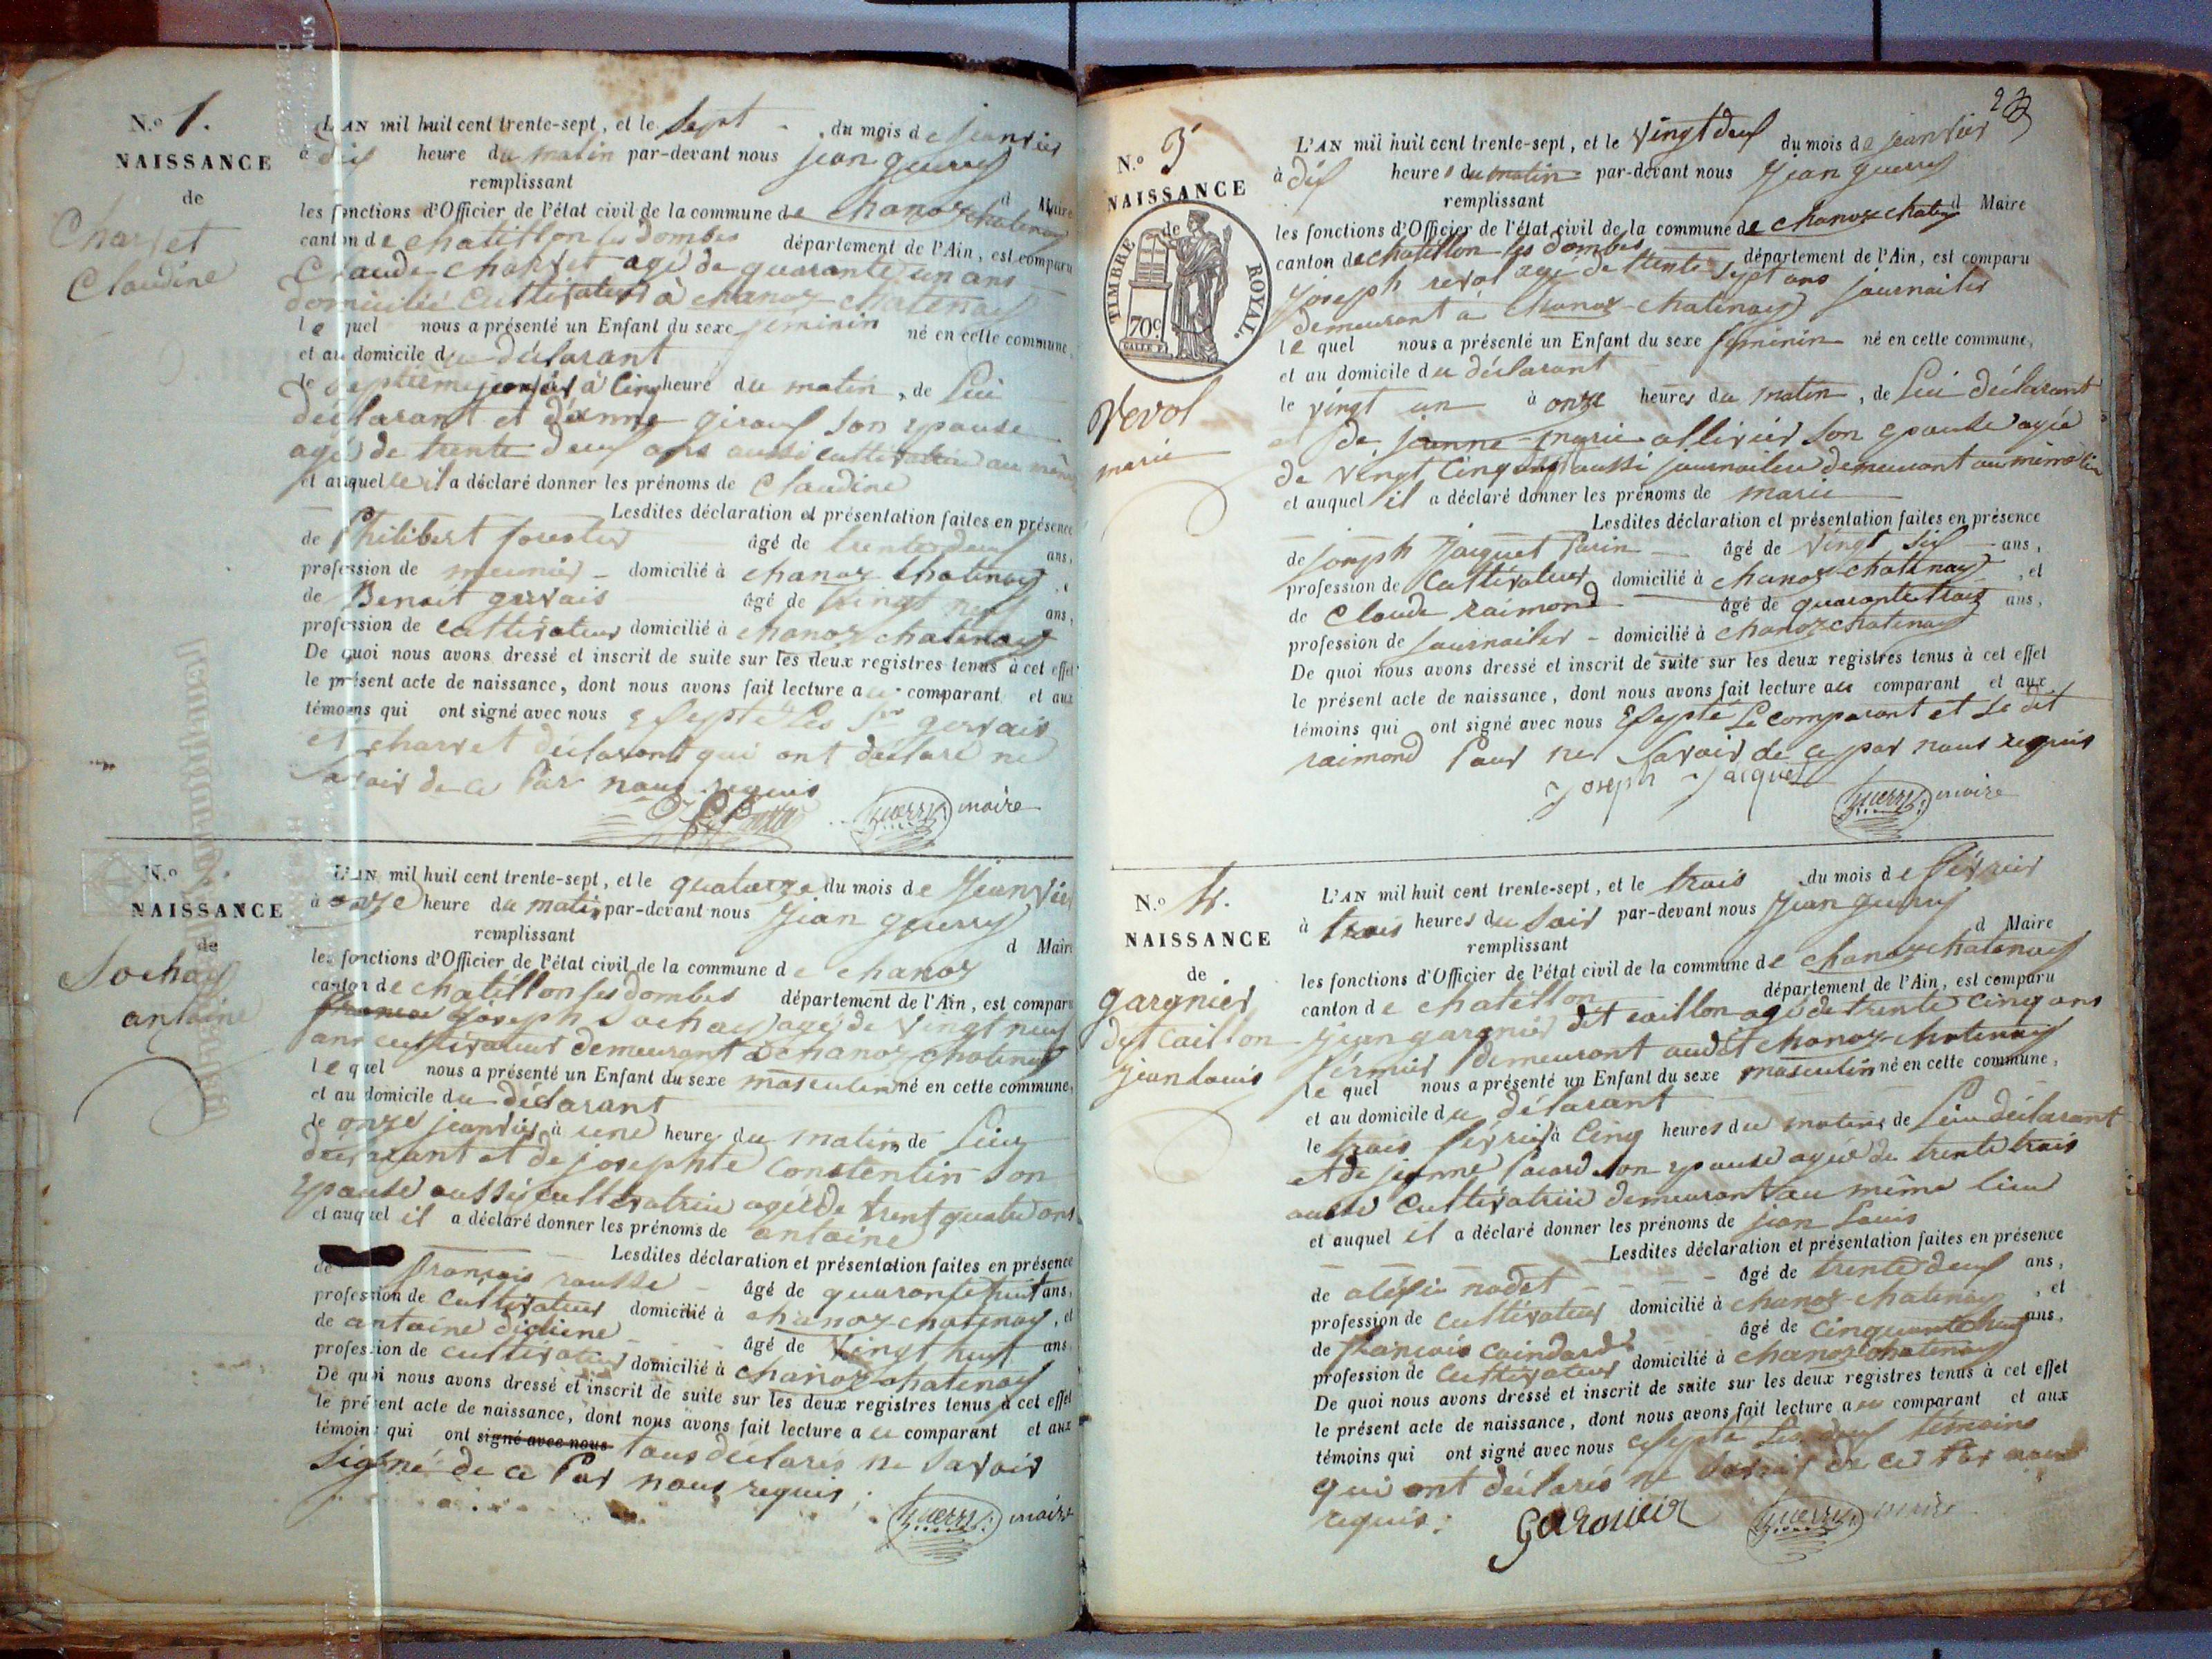 N.º 1.
NAISSANCE
de
Charvet
Claudine
L'AN mil huit cent trente-sept, et le sept du mois de janvier
à dix heure du matin par-devant nous jean guerry
remplissant d Maire
les fonctions d'Officier de l'état civil de la commune de chanoz chatenay
canton de chatillon les dombes département de l'Ain, est comparu
Claude charvet agé de quarante un ans
domicilié cultivateur à chanoz chatenay
le quel nous a présenté un Enfant du sexe feminin né en cette commune,
et au domicile du déclarant
le septieme janvier à cinq heure du matin, de lui
déclarant et d'anne giroux son epouse
agé de trente deux ans aussi cultivatrice au même
et auquelle il a déclaré donner les prénoms de Claudine
Lesdites déclaration et présentation faites en présence
de Philibert forestier âgé de trente deux ans,
profession de meunier domicilié à chanoz chatenay, et
de Benoit gervais âgé de vingt neuf ans,
profession de cultivateur domicilié à chanoz chatenay
De quoi nous avons dressé et inscrit de suite sur les deux registres tenus à cet effet
le présent acte de naissance, dont nous avons fait lecture au comparant et aux
témoins qui ont signé avec nous Esepté les Srs gervais
et charvet déclarant qui ont declaré ne
savoir de ce Par nous requis
guerry maire
N.º
NAISSANCE
de
Sochay
antoine
L'AN mil huit cent trente-sept, et le quatorze du mois de Jeanvier
à onze heure du matin par-devant nous Jean guerry
remplissant d Maire
les fonctions d'Officier de l'état civil de la commune de chanoz
canton de chatillon les dombes département de l'Ain, est comparu
joseph Sochay agé de vingt neuf
ans cultivateur demeurant à chanoz chatenay
le quel nous a présenté un Enfant du sexe masculin né en cette commune,
et au domicile du déclarant
le onze jeanvier à une heure du matin, de lui
déclarant et de josephte Constentin son
epouse aussi cultivatrice agée de trent quatre ans
et auquel il a déclaré donner les prénoms de antoine
Lesdites déclaration et présentation faites en présence
de françois rousse âgé de quarante huit ans,
profession de cultivateur domicilié à chanoz chatenay, et
de antoine âgé de vingt huit ans
profession de cultivateur domicilié à chanoz chatenay
De quoi nous avons dressé et inscrit de suite sur les deux registres tenus à cet effet
le présent acte de naissance, dont nous avons fait lecture au comparant et aux
témoins qui ont signé avec nous Tous déclarés ne savoir
signé de ce Par nous requis;
guerry maire
23
N.º 3
NAISSANCE
de
TIMBRE ROYAL.
70c.
Revol
marie
L'AN mil huit cent trente-sept, et le vingt deux du mois de jeanvier
à dix heures du matin par-devant nous Jean guerry
remplissant d Maire
les fonctions d'Officier de l'état civil de la commune de chanoz chatenay
canton de chatillon les dombes département de l'Ain, est comparu
joseph revol agé de trente sept ans journalier
demeurant à chanoz-chatenay
le quel nous a présenté un Enfant du sexe feminin né en cette commune,
et au domicile du déclarant
le vingt un à onze heures du matin, de lui déclarant
et de jeanne-marie ollivier son epouse agée
de vingt cinq ans aussi journalier demeurant au même lieu
et auquel il a déclaré donner les prénoms de marie
Lesdites déclaration et présentation faites en présence
de joseph Jacquet Parin âgé de vingt six ans,
profession de Cultivateur domicilié à chanoz-chatenay, et
de Claude raimond âgé de quarante trois ans,
profession de journalier domicilié à chanoz chatenay
De quoi nous avons dressé et inscrit de suite sur les deux registres tenus à cet effet
le présent acte de naissance, dont nous avons fait lecture au comparant et aux
témoins qui ont signé avec nous Esepté le comparant et le dit
raimond Pour ne savoir de ce par nous requis
joseph Jacquet
guerry maire
N.º 4.
NAISSANCE
de
gargnier
dit caillon
jean louis
L'AN mil huit cent trente-sept, et le trois du mois de février
à trois heures du soir par-devant nous Jean guerry
remplissant d Maire
les fonctions d'Officier de l'état civil de la commune de chanoz chatenay
canton de chatillon département de l'Ain, est comparu
jean gargnier dit caillon agé de trente cinq ans
fermier demeurant audit chanoz-chatenay
le quel nous a présenté un Enfant du sexe masculin né en cette commune,
et au domicile du déclarant
le trois février à cinq heures du matin, de lui déclarant
et de jeanne Pacard son epouse agée de trente trois
aussi cultivatrice demeurant au même lieu
et auquel il a déclaré donner les prénoms de jean louis
Lesdites déclaration et présentation faites en présence
de nodet âgé de trente deux ans,
profession de cultivateur domicilié à chanoz-chatenay, et
de françois coindard âgé de cinquante ans,
profession de cultivateur domicilié à chanoz chatenay
De quoi nous avons dressé et inscrit de suite sur les deux registres tenus à cet effet
le présent acte de naissance, dont nous avons fait lecture au comparant et aux
témoins qui ont signé avec nous esepté les deux temoins
qui ont déclarés ne savoir de ce Par nous
requis;
guerry maire